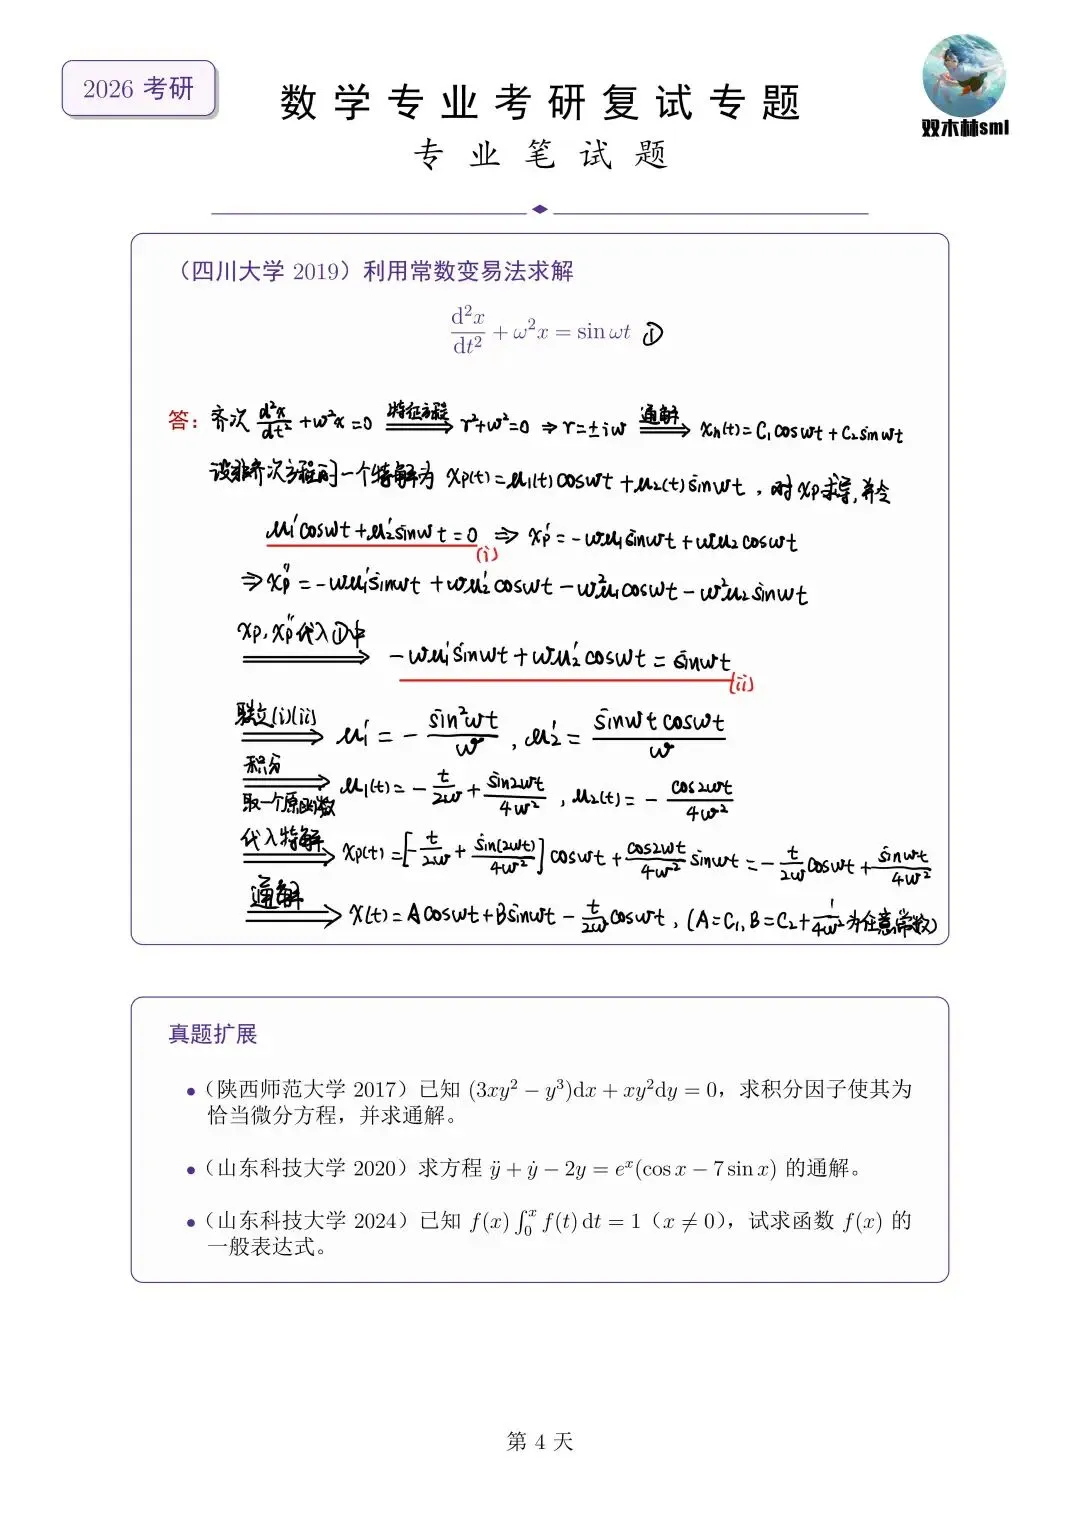 2026 考研
数学专业考研复试专题
双木林sml
专业笔试题
（四川大学 2019）利用常数变易法求解
d²x/dt² + ω²x = sin ωt ①
答：齐次 d²x/dt² + ω²x = 0 特征方程⟹ r²+ω²=0 ⇒ r=±iω 通解⟹ xₕ(t)=C₁cosωt+C₂sinωt
设非齐次方程的一个特解为 xₚ(t)=μ₁(t)cosωt+μ₂(t)sinωt，对xₚ求导,并令
μ₁'cosωt+μ₂'sinωt=0 (i) ⇒ xₚ'=-ωμ₁sinωt+ωμ₂cosωt
⇒ xₚ''=-ωμ₁'sinωt+ωμ₂'cosωt-ω²μ₁cosωt-ω²μ₂sinωt
xₚ,xₚ''代入①中⟹ -ωμ₁'sinωt+ωμ₂'cosωt=sinωt (ii)
联立(i)(ii)⟹ μ₁'=-sin²ωt/ω，μ₂'=sinωt cosωt/ω
积分 取一个原函数⟹ μ₁(t)=-t/2ω+sin2ωt/4ω²，μ₂(t)=-cos2ωt/4ω²
代入特解⟹ xₚ(t)=[-t/2ω+sin(2ωt)/4ω²]cosωt+cos2ωt/4ω² sinωt=-t/2ω cosωt+sinωt/4ω²
通解⟹ x(t)=Acosωt+Bsinωt-t/2ω cosωt，(A=C₁,B=C₂+1/4ω²为任意常数)
真题扩展
•（陕西师范大学 2017）已知 (3xy² − y³)dx + xy²dy = 0，求积分因子使其为
恰当微分方程，并求通解。
•（山东科技大学 2020）求方程 ÿ + ẏ − 2y = eˣ(cos x − 7 sin x) 的通解。
•（山东科技大学 2024）已知 f(x) ∫₀ˣ f(t) dt = 1（x ≠ 0），试求函数 f(x) 的
一般表达式。
第 4 天